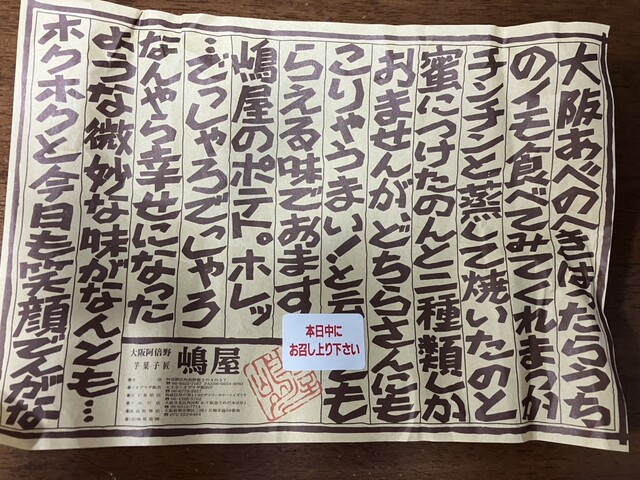 大阪あべのへきはったらうち
のイモ食べてみてくれまっか
チンチンと蒸して焼いたのと
蜜につけたのんと二種類しか
おませんが、どちらさんにも
こりゃうまい!と
も
らえる味でおます
嶋屋のポテト。ホレッ
…でっしゃろでっしゃろ
なんやら幸せになった
ような微妙な味がなんとも…
ホクホクと今日も笑顔でんがな
本日中に
お召し上り下さい
大阪阿倍野
芋菓子匠
嶋屋